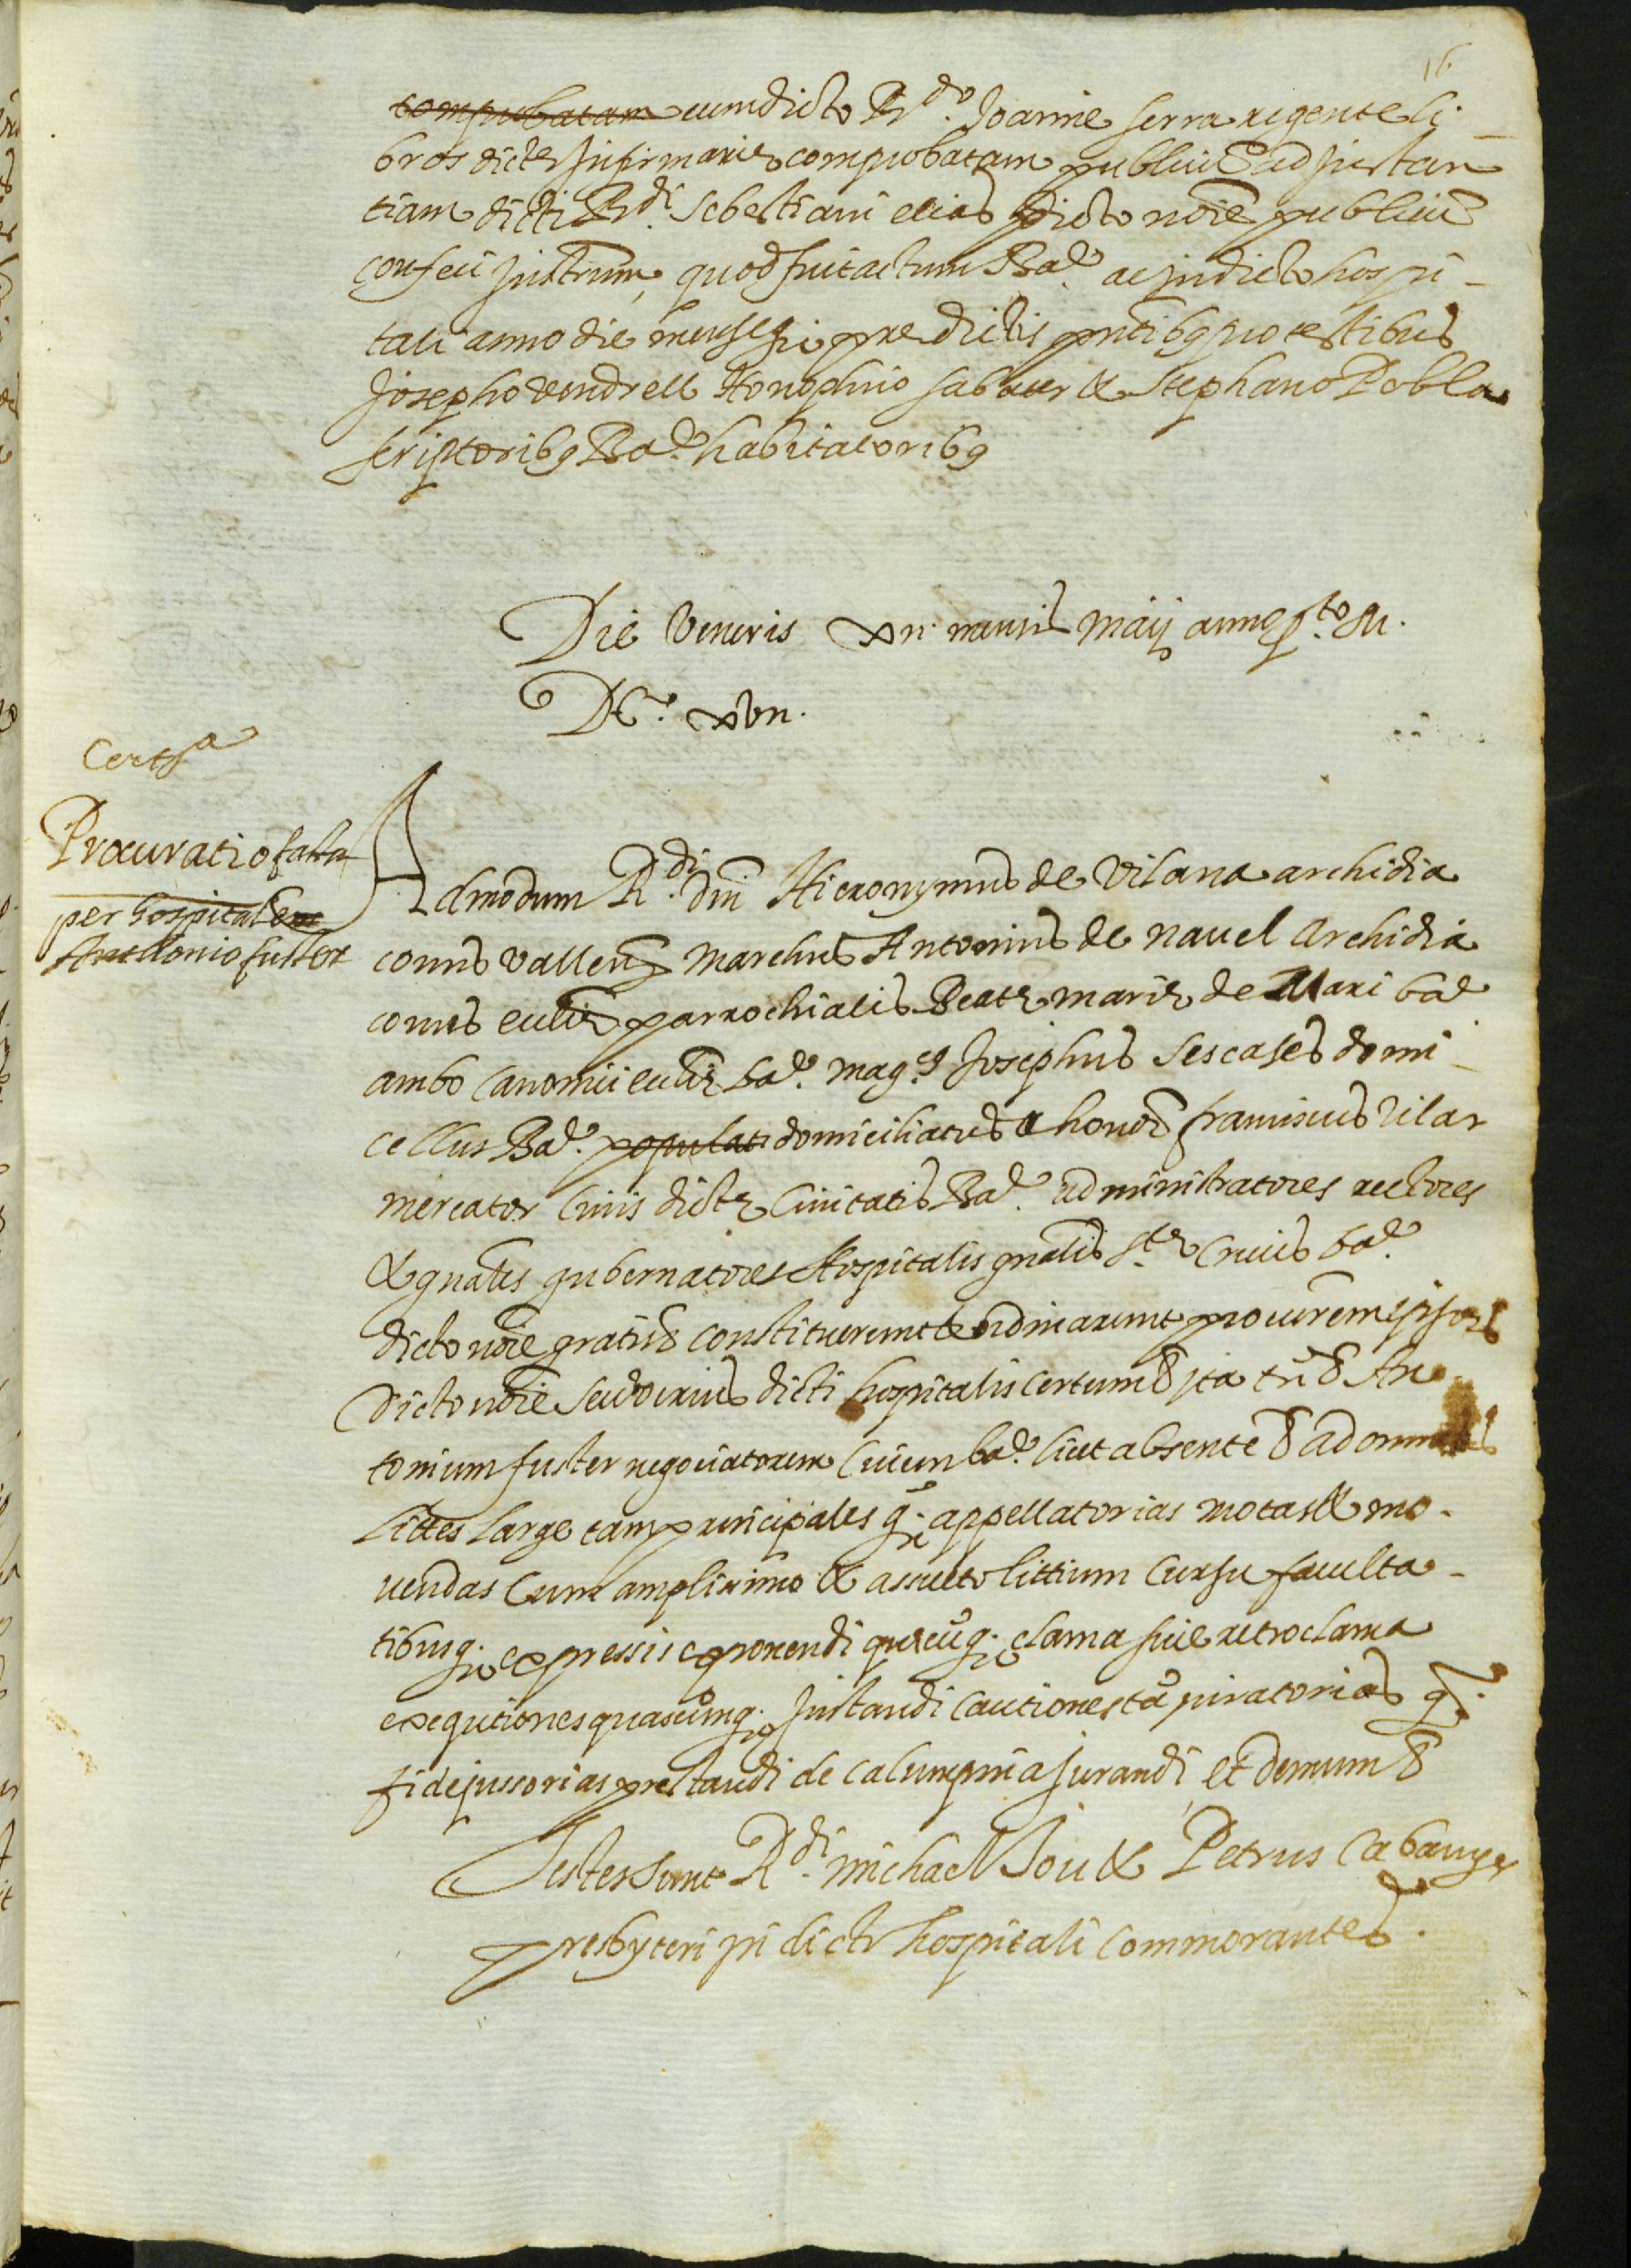 16
compubatam cum dicto Rdo. Joanne serra regente li-
bros dictę Infirmarię comprobatam publicū ad instan
tiam dicti Rdi. Sebestiani elias dicto noīe publicū
confeci Instrum, quod fuit actum Bae. ac in dicto hospi-
tali anno die mense pre dictis pntibꝰ pro testibus
Josepho vendrell Honophrio sabater & Stephano Pobla
scriptoribꝰ Bae. habitatoribꝰ
Die Veneris xii. mensis Maij anno pto. M.
DC. xvii.
Certfa
Procuratio facta
per hospitalem
Anthonio fuster
Admodum Rdi. dni Hieronymus de Vilana archidia
conus Vallens Marchus Antonius de Navel Archidia
conus ecclię parrochialis Beatę Marię de Mari bae
ambo Canonici ecclię bae. magcs Josephus Sescases domi-
cellus Bae. populat domiciliatus & honor franciscus Vilar
mercator Civis dictę Civitatis Bae. administratores rectores
& gnales gubernatores Hospitalis gnalis Stę Crucis bae.
dicto noīe gratis & constituerunt & ordinarunt procurem ipsors
dicto noīe seu verius dicti hospitalis certum & ita tn & An
tonium fuster negociatorem Civem bae. licet absente & ad omnes
Littes large tam principales q. appellatorias motas & mo-
vendas Cum amplissimo & assueto littium Cursu faculta-
tibusq. expressis exponendi quecūq. clama sive retroclama
exequtiones quascūmq. Instandi Cautiones tā juratorias q.
fidejussorias prestandi de calumpnia jurandi, et demum &
Testes sunt Rdi. Michael Jou & Petrus Cabanyes
presbyteri in dicto hospitali Commorantes.